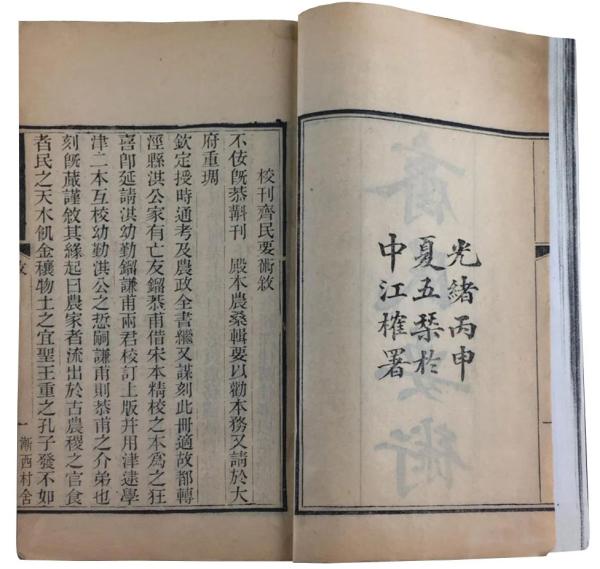 光緒丙申
夏五琹於
中江榷署
校刊齊民要術敘
不佞旣恭斠刊　殿本農桑輯要以勸本務又請於大
府重琱
欽定授時通考及農政全書繼又謀刻此冊適故鄣轉
涇縣洪公家有亡友鎦恭甫借宋本精校之本為之狂
喜卽延請洪幼勤鎦謙甫兩君校訂上版幷用津逮學
津二本互校幼勤淇公之悊嗣謙甫則恭甫之介弟也
刻旣蕆謹敘其緣起曰農家者流出於古農稷之官食
者民之天木飢金穰物土之宜聖王重之孔子發不如
敘
漸西村舍